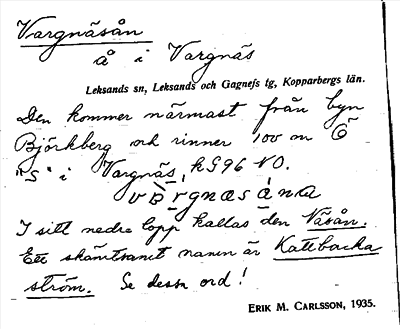 Vargnäsån
å i Vargnäs
Leksands sn, Leksands och Gagnefs tg, Kopparbergs län.
Den kommer närmast från byn
Björkberg och rinner 100 m Ö
"S" i Vargnäs, k S96 NO.
I sitt nedre lopp kallas den Väsån.
Ett skämtsamt namn är Kattbacka
ström. Se dessa ord!
ERIK M. CARLSSON, 1935.